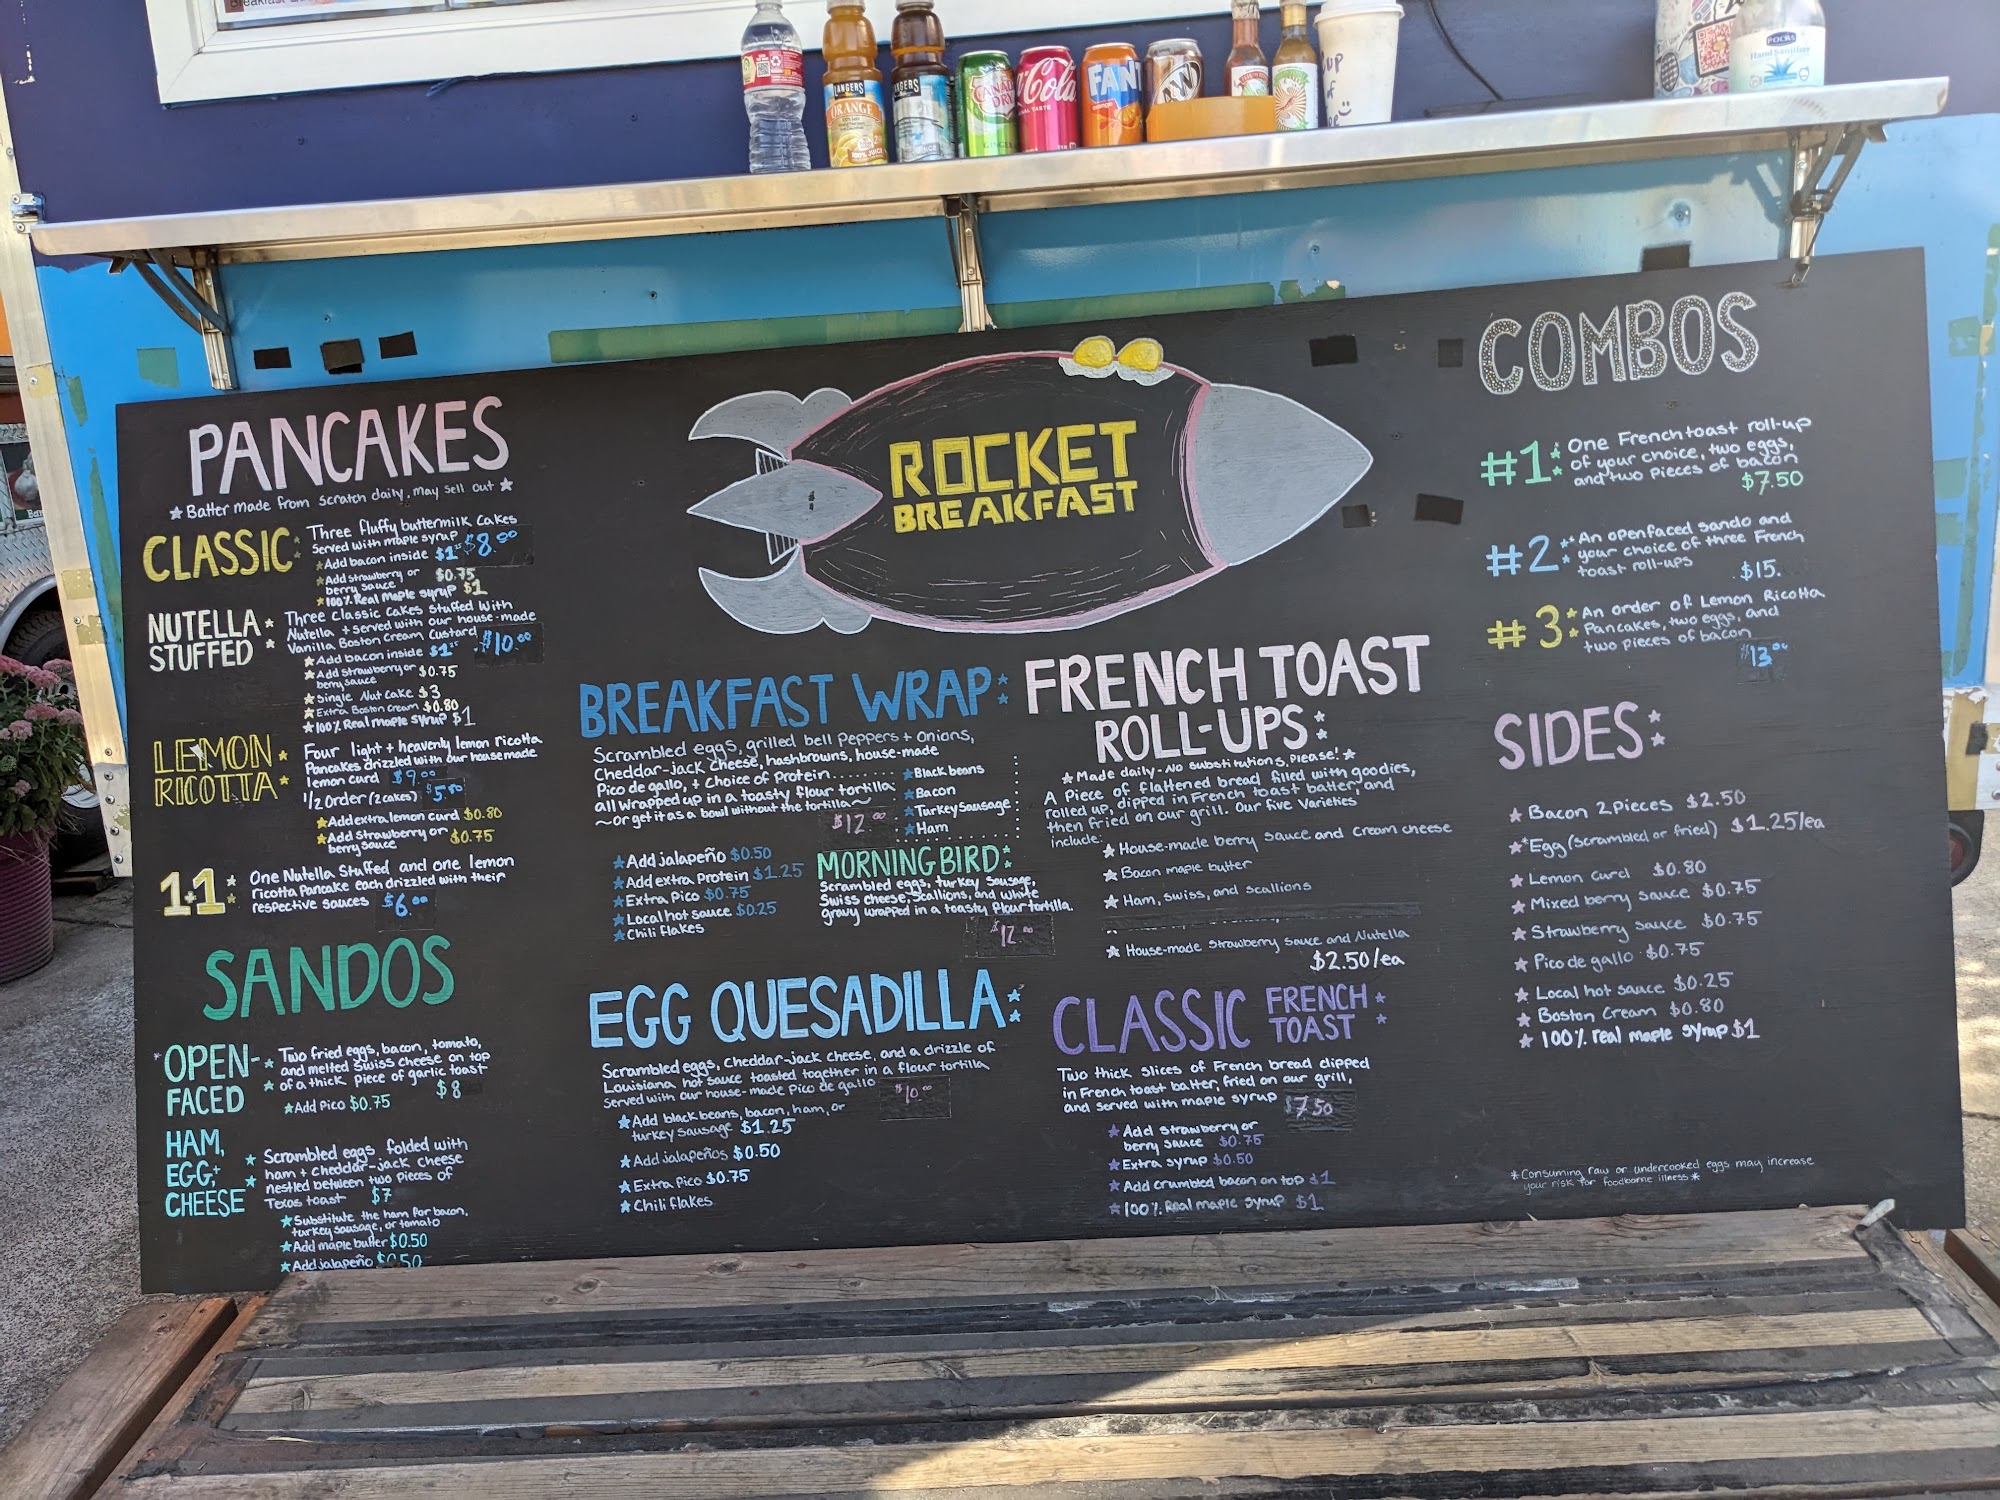 LANGERS
ORANGE
100% JUICE
CANADA
DRY
GINGER
Cola
FANT
A&W
POCKS
Hand Sanitizer
ROCKET
BREAKFAST
PANCAKES
★ Batter made from scratch daily, may sell out ★
CLASSIC:
Three fluffy buttermilk cakes
Served with maple syrup $8.00
★Add bacon inside $1
★Add strawberry or
berry sauce $0.75
★100% Real Maple syrup $1
NUTELLA
STUFFED
Three Classic Cakes stuffed with
Nutella + served with our house-made
Vanilla Boston Cream Custard $10.00
★Add bacon inside $1
★Add strawberry or
berry sauce $0.75
★Single Nut cake $3
★Extra Boston Cream $0.80
★100% Real maple syrup $1
LEMON
RICOTTA
Four light + heavenly lemon ricotta
Pancakes drizzled with our housemade
lemon curd $9.00
1/2 Order (2 cakes) $5.50
★Add extra lemon curd $0.80
★Add strawberry or
berry sauce $0.75
1+1
One Nutella Stuffed and one lemon
ricotta Pancake each drizzled with their
respective sauces $6.00
SANDOS
*OPEN-
FACED
Two fried eggs, bacon, tomato,
and melted Swiss cheese on top
of a thick piece of garlic toast
$8
★Add Pico $0.75
HAM,
EGG,+
CHEESE
Scrambled eggs folded with
ham + cheddar-jack cheese
nestled between two pieces of
Texas toast $7
★Substitute the ham for bacon,
turkey sausage, or tomato
★Add maple butter $0.50
★Add jalapeño $0.50
BREAKFAST WRAP:
Scrambled eggs, grilled bell peppers + onions,
Cheddar-jack cheese, hashbrowns, house-made
Pico de gallo, + Choice of Protein........
all wrapped up in a toasty flour tortilla
~Or get it as a bowl without the tortilla~
$12.00
★Black beans
★Bacon
★Turkey Sausage
★Ham
★Add jalapeño $0.50
★Add extra Protein $1.25
★Extra Pico $0.75
★Local hot sauce $0.25
★Chili flakes
MORNING BIRD:
Scrambled eggs, turkey sausage,
Swiss cheese, Scallions, and white
gravy wrapped in a toasty flour tortilla.
$12.00
EGG QUESADILLA:
Scrambled eggs, cheddar-jack cheese, and a drizzle of
Louisiana hot sauce toasted together in a flour tortilla
served with our house-made Pico de gallo $10.00
★Add black beans, bacon, ham, or
turkey sausage $1.25
★Add jalapeños $0.50
★Extra Pico $0.75
★Chili flakes
FRENCH TOAST
ROLL-UPS:
★Made daily-No substitutions, Please!★
A Piece of flattened bread filled with goodies,
rolled up, dipped in French toast batter, and
then fried on our grill. Our five Varieties
include:
★House-made berry sauce and cream cheese
★Bacon maple butter
★Ham, swiss, and scallions
★House-made strawberry sauce and Nutella
$2.50/ea
CLASSIC FRENCH
TOAST
Two thick slices of French bread dipped
in French toast batter, fried on our grill,
and served with maple syrup $7.50
★Add strawberry or
berry sauce $0.75
★Extra syrup $0.50
★Add crumbled bacon on top $1
★100% Real maple syrup $1
COMBOS
#1
One French toast roll-up
of your choice, two eggs,
and two pieces of bacon
$7.50
#2
*An openfaced sando and
your choice of three French
toast roll-ups
$15.
#3
An order of Lemon Ricotta
Pancakes, two eggs, and
two pieces of bacon
$13.00
SIDES:
★Bacon 2 Pieces $2.50
★*Egg (scrambled or fried) $1.25/ea
★Lemon curd $0.80
★Mixed berry sauce $0.75
★Strawberry sauce $0.75
★Pico de gallo $0.75
★Local hot sauce $0.25
★Boston Cream $0.80
★100% real maple syrup $1
*Consuming raw or undercooked eggs may increase
your risk for foodborne illness*